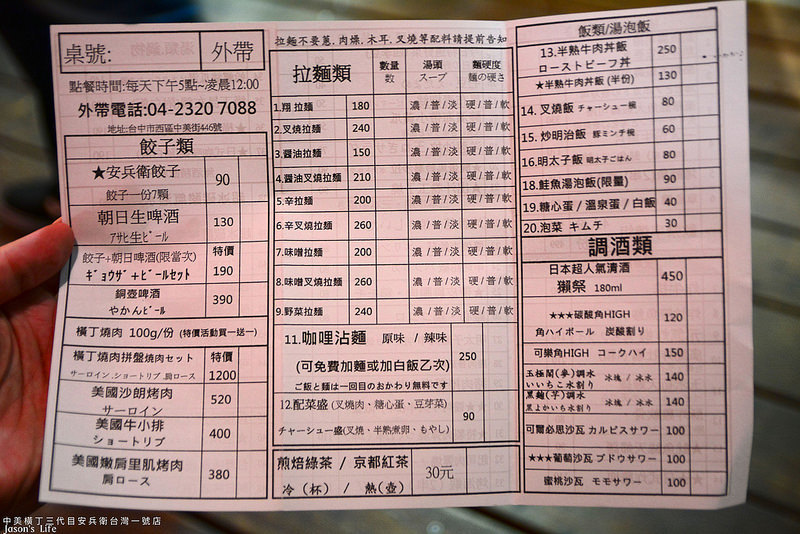 桌號: 外帶
點餐時間:每天下午5點~凌晨12:00
外帶電話:04-2320 7088
地址:台中市西區中美街446號
餃子類
★安兵衛餃子 90
餃子一份7顆
朝日生啤酒 130
アサヒ生ビール
餃子+朝日啤酒(限當次) 特價
ギョウザ+ビールセット 190
銅壺啤酒 390
やかんビール
橫丁燒肉 100g/份 (特價活動買一送一)
橫丁燒肉拼盤焼肉セット 特價
サーロイン.ショートリブ.肩ロース 1200
美國沙朗烤肉 520
サーロイン
美國牛小排 400
ショートリブ
美國嫩肩里肌烤肉 380
肩ロース
拉麵不要蔥.肉燥.木耳.叉燒等配料請提前告知
拉麵類 數量 湯頭 麵硬度
数 スープ 麺の硬さ
1.翔 拉麵 180 濃/普/淡 硬/普/軟
2.叉燒拉麵 240 濃/普/淡 硬/普/軟
3.醬油拉麵 150 濃/普/淡 硬/普/軟
4.醬油叉燒拉麵 210 濃/普/淡 硬/普/軟
5.辛拉麵 200 濃/普/淡 硬/普/軟
6.辛叉燒拉麵 260 濃/普/淡 硬/普/軟
7.味噌拉麵 200 濃/普/淡 硬/普/軟
8.味噌叉燒拉麵 260 濃/普/淡 硬/普/軟
9.野菜拉麵 240 濃/普/淡 硬/普/軟
11.咖哩沾麵 原味 / 辣味 250
(可免費加麵或加白飯乙次)
ご飯と麺は一回目のおかわり無料です
12.配菜盛 (叉燒肉、糖心蛋、豆芽菜) 90
チャーシュー盛(叉燒、半熟煮卵、もやし)
煎焙綠茶 / 京都紅茶 30元
冷 (杯) / 熱(壺)
飯類/湯泡飯
13.半熟牛肉丼飯 250
ローストビーフ丼
★半熟牛肉丼飯 (半份) 130
14. 叉燒飯 チャーシュー碗 80
15. 炒明治飯 豚ミンチ碗 60
16.明太子飯 明太子ごはん 80
18.鮭魚湯泡飯(限量) 90
19.糖心蛋 / 溫泉蛋 / 白飯 40
20.泡菜 キムチ 30
調酒類
日本超人氣清酒 450
獺祭 180ml
★★★碳酸角HIGH 120
角ハイボール 炭酸割り
可樂角HIGH コークハイ 150
玉極閣(麥)調水 冰塊 / 冰水 140
いいちこ水割り
黑麴(芋)調水 冰塊 / 冰水 140
黒よかいち水割り
可爾必思沙瓦 カルピスサワー 100
★★★葡萄沙瓦 ブドウサワー 100
蜜桃沙瓦 モモサワー 100
中美橫丁三代目安兵衛台灣一號店
Jason's Life